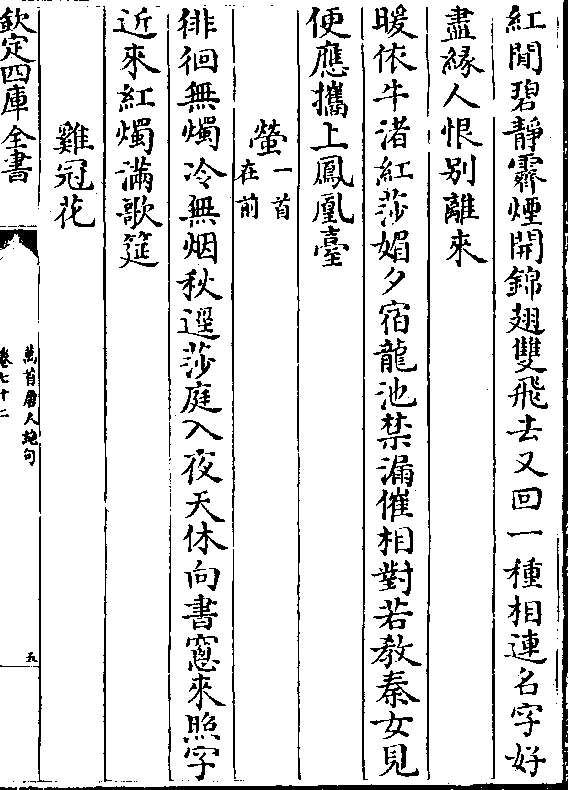 紅閒碧靜霽煙開錦翅雙飛去又回一種相連名字好
盡緣人恨别離來
暖依牛渚紅莎媚夕宿龍池禁漏催相對若教秦女見
便應攜上鳳凰臺
螢一首在前
徘徊無燭冷無烟秋逕莎庭入夜天休向書窻來照字
近來紅燭滿歌筵
雞冠花
欽定四庫全書
萬首唐人絶句
卷七十二
五